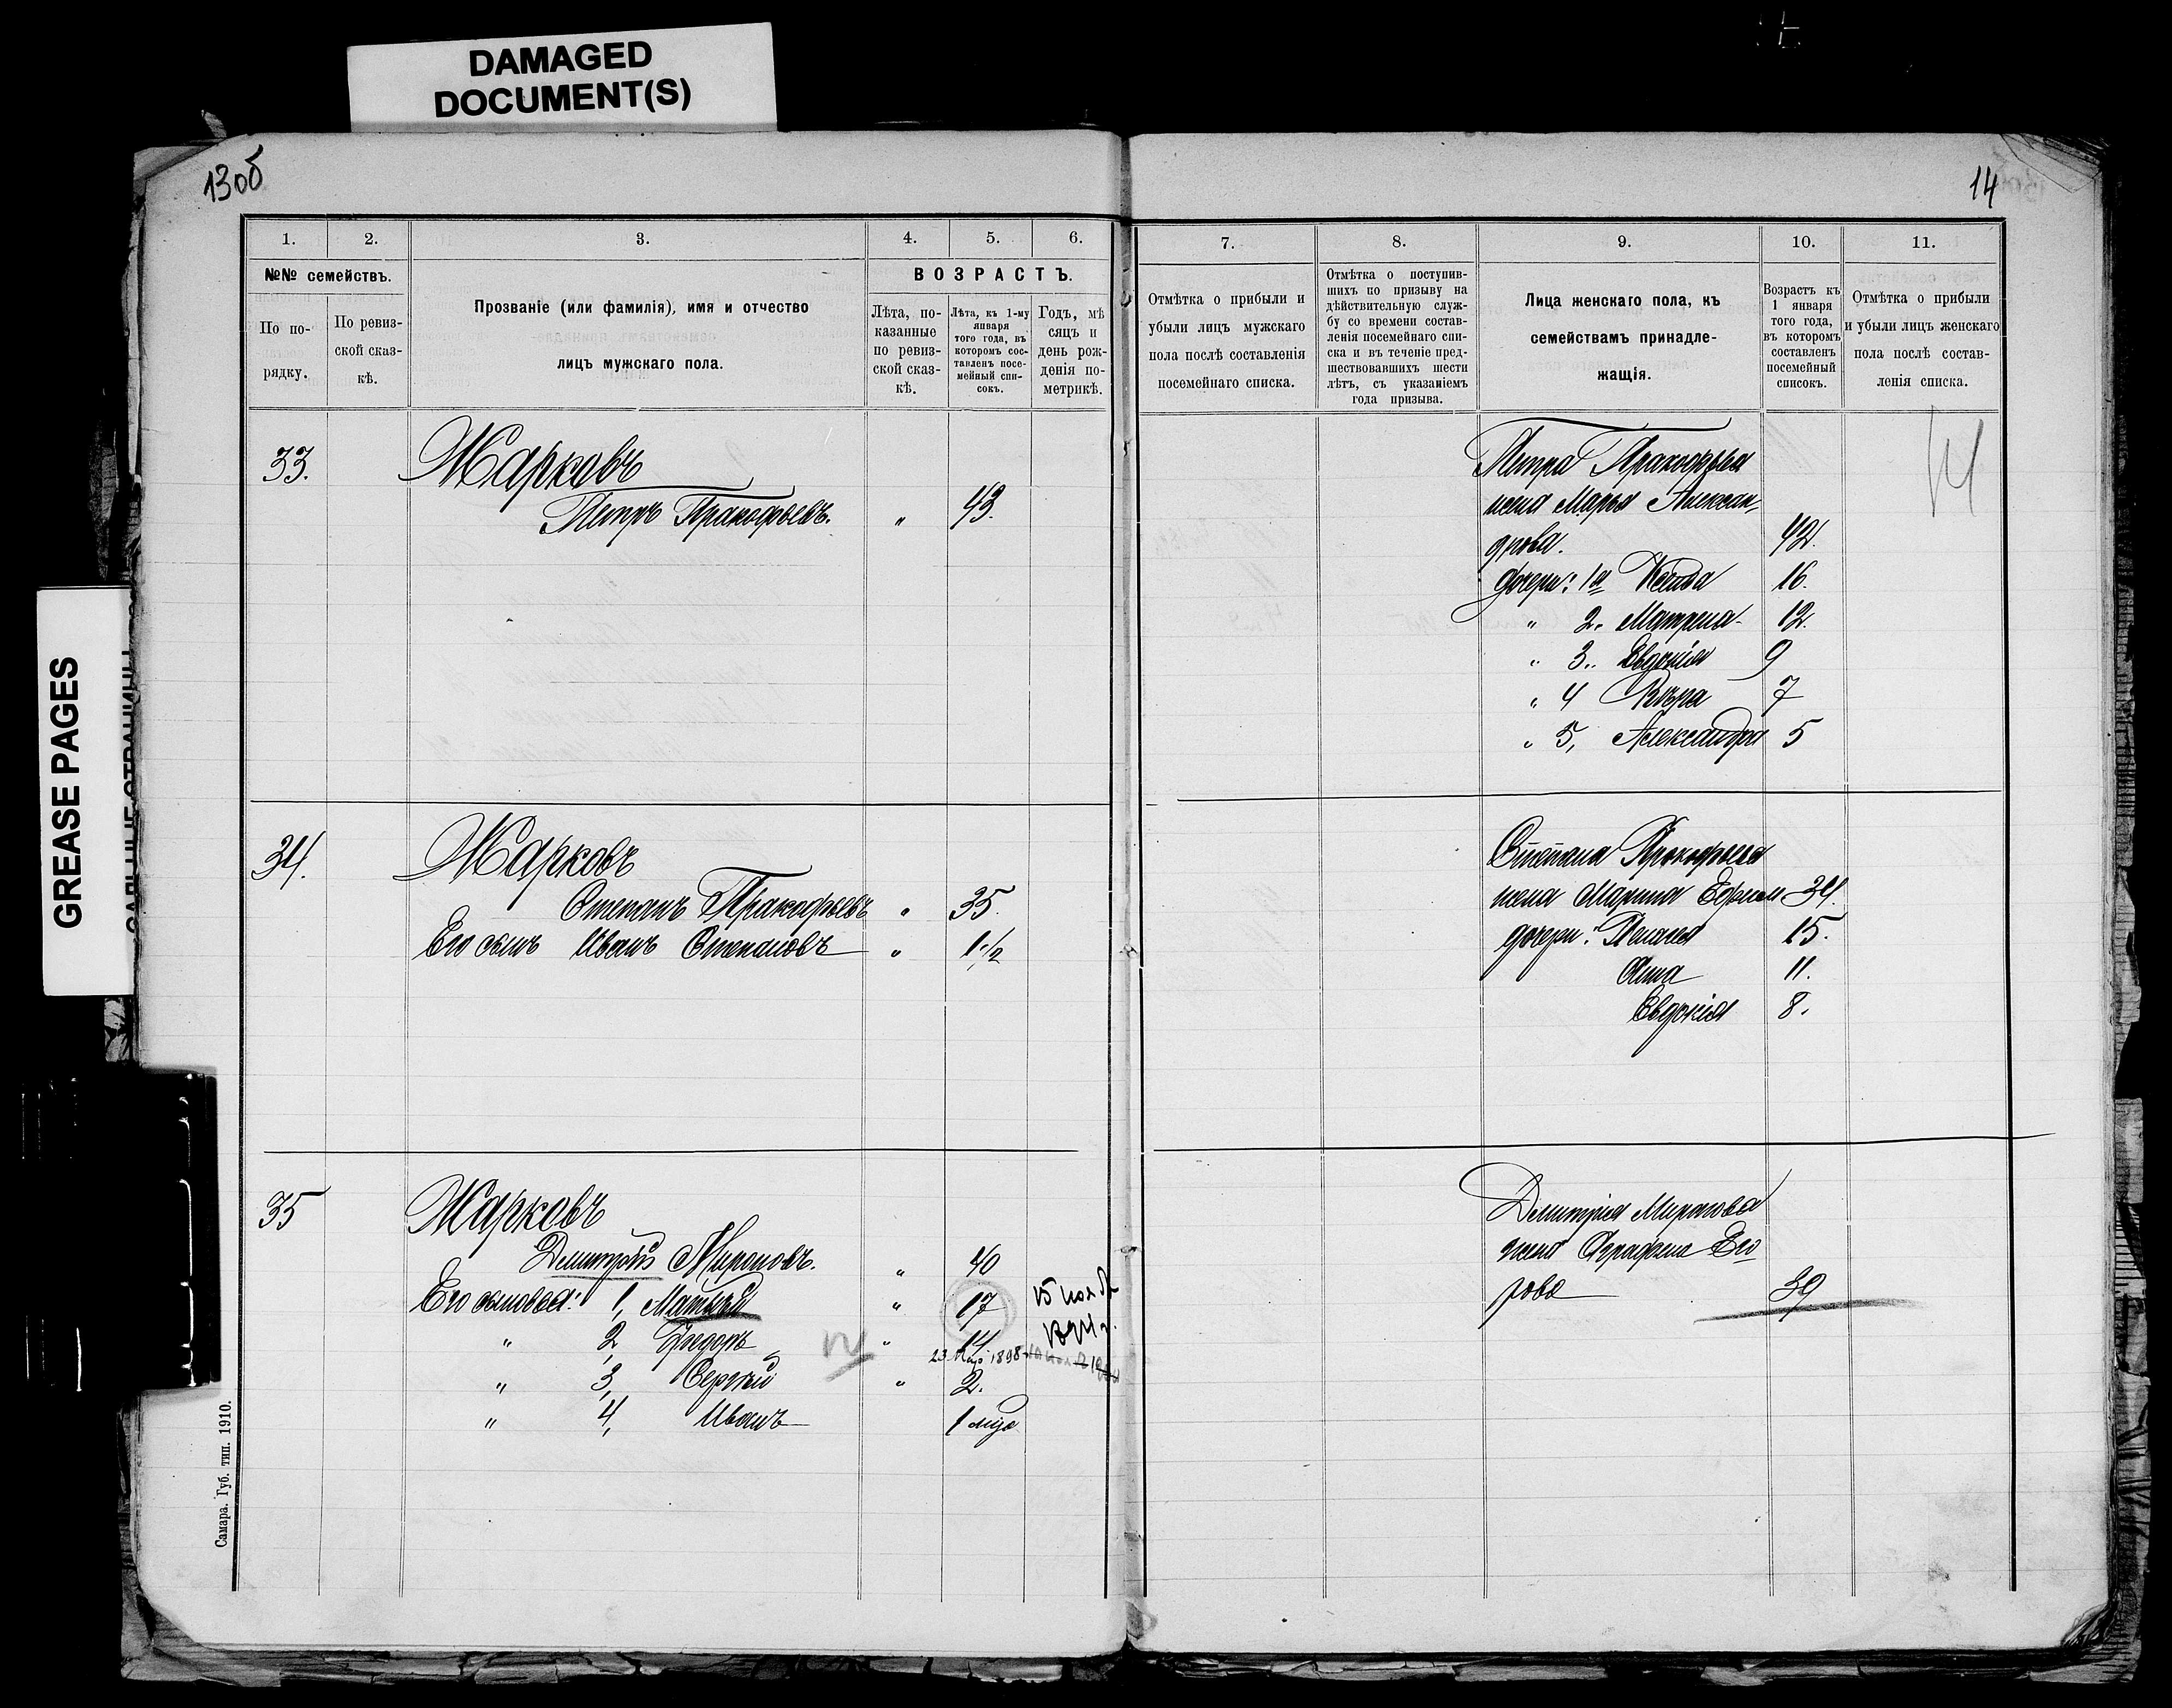 DAMAGED
DOCUMENT(S)
GREASE PAGES
13об
14
1. 2. 3. 4. 5. 6.
№№ семействъ.
По по-
рядку.
По ревиз-
ской сказ-
кѣ.
Прозваніе (или фамилія), имя и отчество
лицъ мужскаго пола.
ВОЗРАСТЪ.
Лѣта, по-
казанные
по ревиз-
ской сказ-
кѣ.
Лѣта, къ 1-му
января
того года, въ
которомъ сос-
тавленъ посе-
мейный спи-
сокъ.
Годъ, мѣ
сяцъ и
день рож-
денія по-
метрикѣ.
7. 8. 9. 10. 11.
Отмѣтка о прибыли и
убыли лицъ мужскаго
пола послѣ составленія
посемейнаго списка.
Отмѣтка о поступив-
шихъ по призыву на
дѣйствительную служ-
бу со времени состав-
ленія посемейнаго спи-
ска и въ теченіе пред-
шествовавшихъ шести
лѣтъ, съ указаніемъ
года призыва.
Лица женскаго пола, къ
семействамъ принадле-
жащія.
Возрастъ къ
1 января
того года,
въ которомъ
составленъ
посемейный
списокъ.
Отмѣтка о прибыли
и убыли лицъ женскаго
пола послѣ состав-
ленія списка.
33. Жарковъ
Петръ Пракофьевъ. " 43.
Петра Пракофьева
жена Марья Алексан-
дрова. 42.
дочери: 1я 16.
" 2. Матрена 12.
" 3.. Евдокія 9
" 4 Вѣра 7
" 5, Александра 5
14
34. Жарковъ
Степанъ Пракофьевъ " 35.
Его сынъ Иванъ Степановъ " 1 1/2
Степана Прокофьева
жена Марина Ефим 34.
дочери: Пелагея 15.
Анна 11.
Евдокія 8.
35 Жарковъ
Дмитрій Мироновъ. " 40
Его сыновья: 1, Матвѣй " 17 15 нояб
1894 г.
" 2, Федоръ " 14
23 Мая 1898
" 3, Сергѣй " 2.
" 4, Иванъ 1 мца
Дмитрія Миронова
жена Аграфена Его
рова 39
Самара. Губ. тип. 1910.